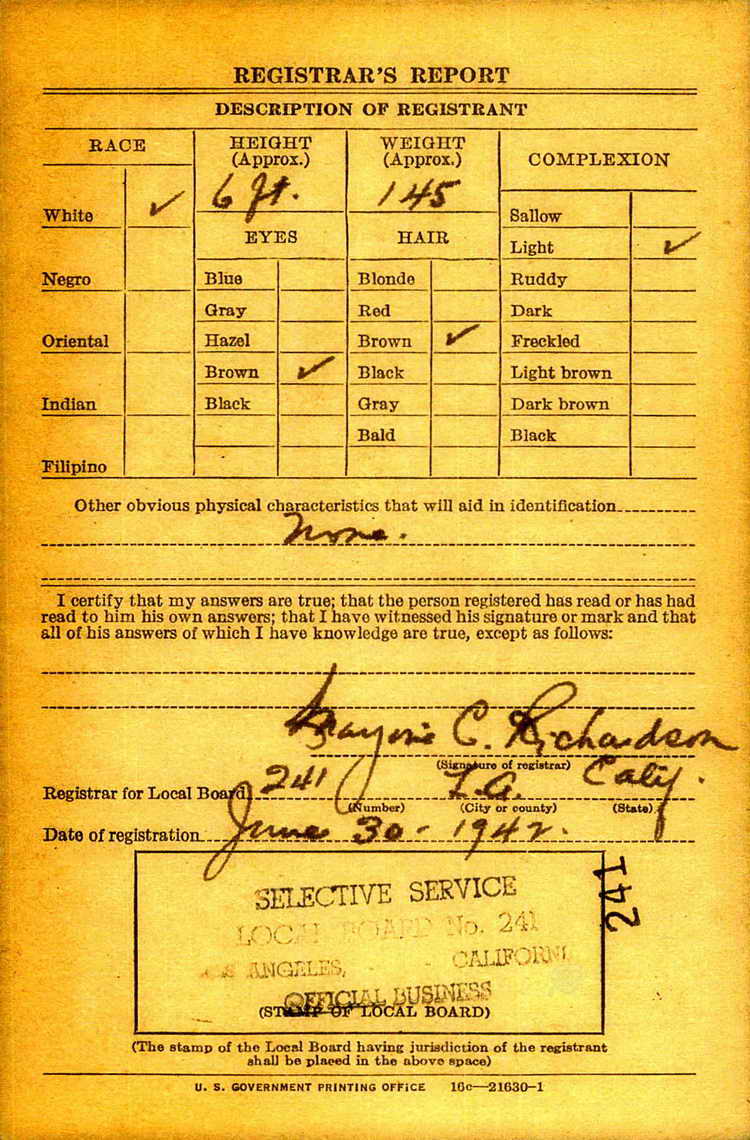 REGISTRAR'S REPORT
DESCRIPTION OF REGISTRANT
RACE
HEIGHT (Approx.)
WEIGHT (Approx.)
COMPLEXION
6 ft.
145
White ✓
Sallow
EYES
HAIR
Light ✓
Negro
Blue
Blonde
Ruddy
Gray
Red
Dark
Oriental
Hazel
Brown ✓
Freckled
Brown ✓
Black
Light brown
Indian
Black
Gray
Dark brown
Bald
Black
Filipino
Other obvious physical characteristics that will aid in identification
None.
I certify that my answers are true; that the person registered has read or has had
read to him his own answers; that I have witnessed his signature or mark and that
all of his answers of which I have knowledge are true, except as follows:
Marjorie C. Richardson
(Signature of registrar)
Registrar for Local Board 241 L.A. Calif.
(Number) (City or county) (State)
Date of registration June 30 - 1942.
SELECTIVE SERVICE
LOCAL BOARD No. 241
LOS ANGELES, CALIFORNIA
OFFICIAL BUSINESS
(STAMP OF LOCAL BOARD)
241
(The stamp of the Local Board having jurisdiction of the registrant
shall be placed in the above space)
U. S. GOVERNMENT PRINTING OFFICE 16c—21630-1